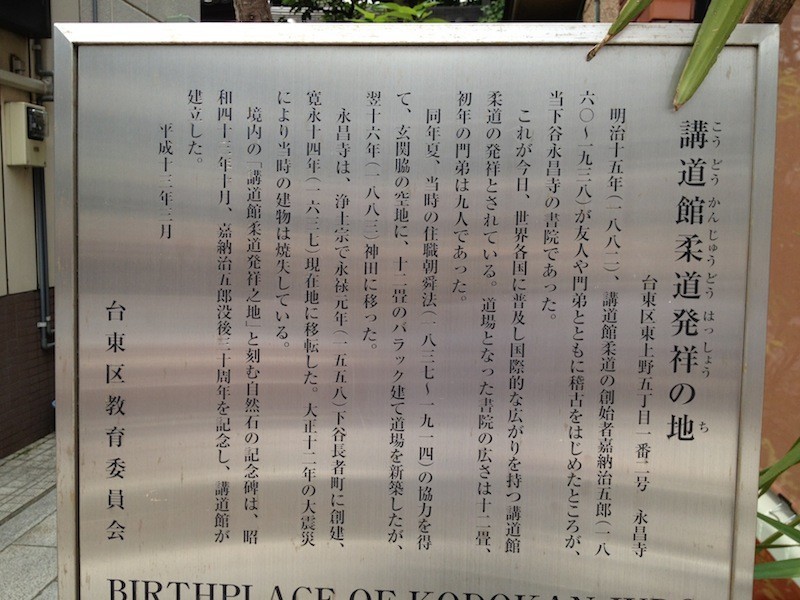 講道館柔道発祥の地
こうどうかんじゅうどうはっしょう ち
台東区東上野五丁目一番二号 永昌寺
明治十五年(一八八二)、講道館柔道の創始者嘉納治五郎(一八
六〇〜一九三八)が友人や門弟とともに稽古をはじめたところが、
当下谷永昌寺の書院であった。
これが今日、世界各国に普及し国際的な広がりを持つ講道館
柔道の発祥とされている。道場となった書院の広さは十二畳、
初年の門弟は九人であった。
同年夏、当時の住職朝舜法(一八三七〜一九一四)の協力を得
て、玄関脇の空地に、十二畳のバラック建て道場を新築したが、
翌十六年(一八八三)神田に移った。
永昌寺は、浄土宗で永禄元年(一五五八)下谷長者町に創建、
寛永十四年(一六三七)現在地に移転した。大正十二年の大震災
により当時の建物は焼失している。
境内の「講道館柔道発祥之地」と刻む自然石の記念碑は、昭
和四十三年十月、嘉納治五郎没後三十周年を記念し、講道館が
建立した。
平成十三年三月
台東区教育委員会
BIRTHPLACE OF KODOKAN JUDO